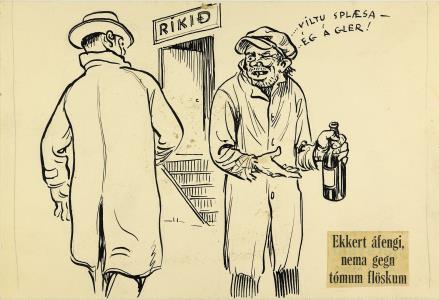 RÍKIÐ
...VILTU SPLÆSA —
ÉG Á GLER!
Ekkert áfengi,
nema gegn
tómum flöskum